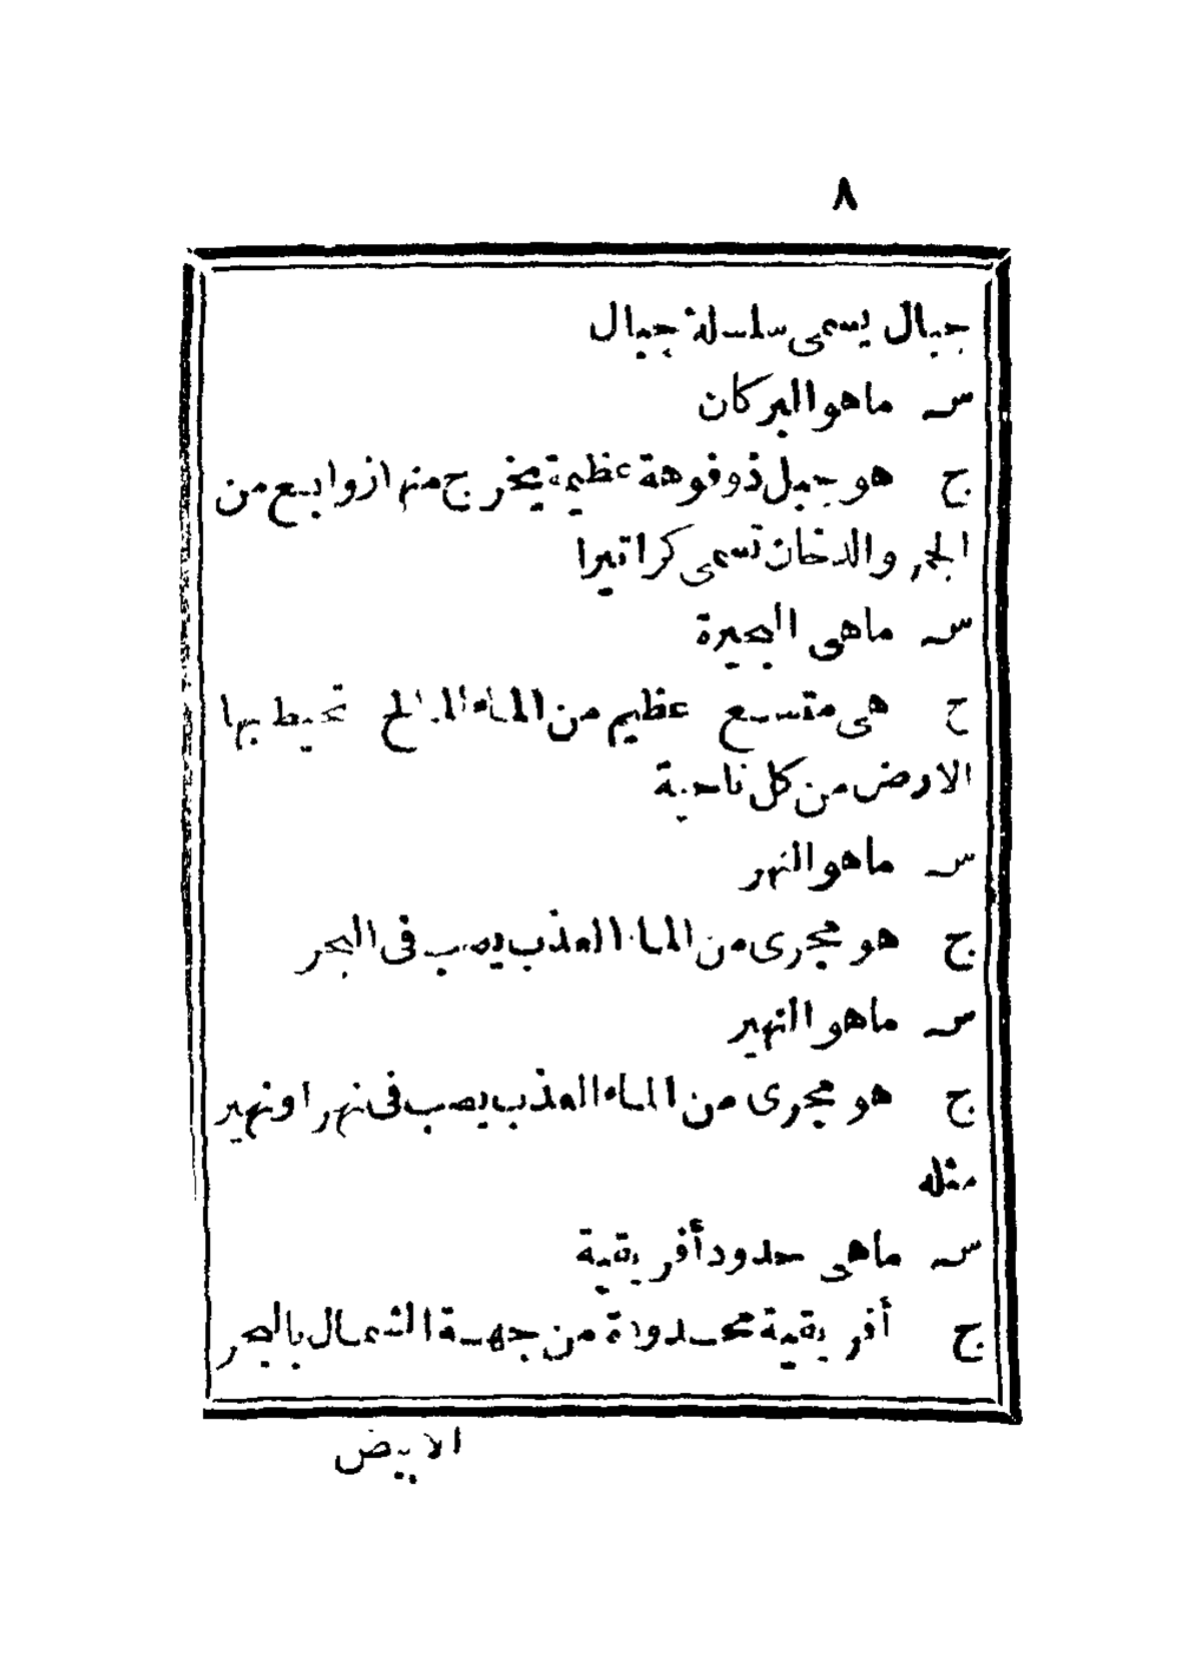 ٨
جبال يسمى سلسلة جبال
س ما هو البركان
ج هو جبل ذو فوهة عظيمة يخرج منها زوابع من
الجمر والدخان تسمى كراتيرا
س ما هى البحيرة
ج هى متسع عظيم من الماء المالح تحيط بها
الارض من كل ناحية
س ما هو النهر
ج هو مجرى من الماء العذب يصب فى البحر
س ما هو النهير
ج هو مجرى من الماء العذب يصب فى نهر او نهير
مثله
س ما هى حدود أفريقية
ج أفريقية محدودة من جهة الشمال بالبحر
الابيض